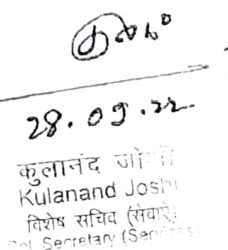 28.09.22
कुलानंद जोशी
Kulanand Joshi
विशेष सचिव (सेवाएं)
Spl. Secretary (Services)